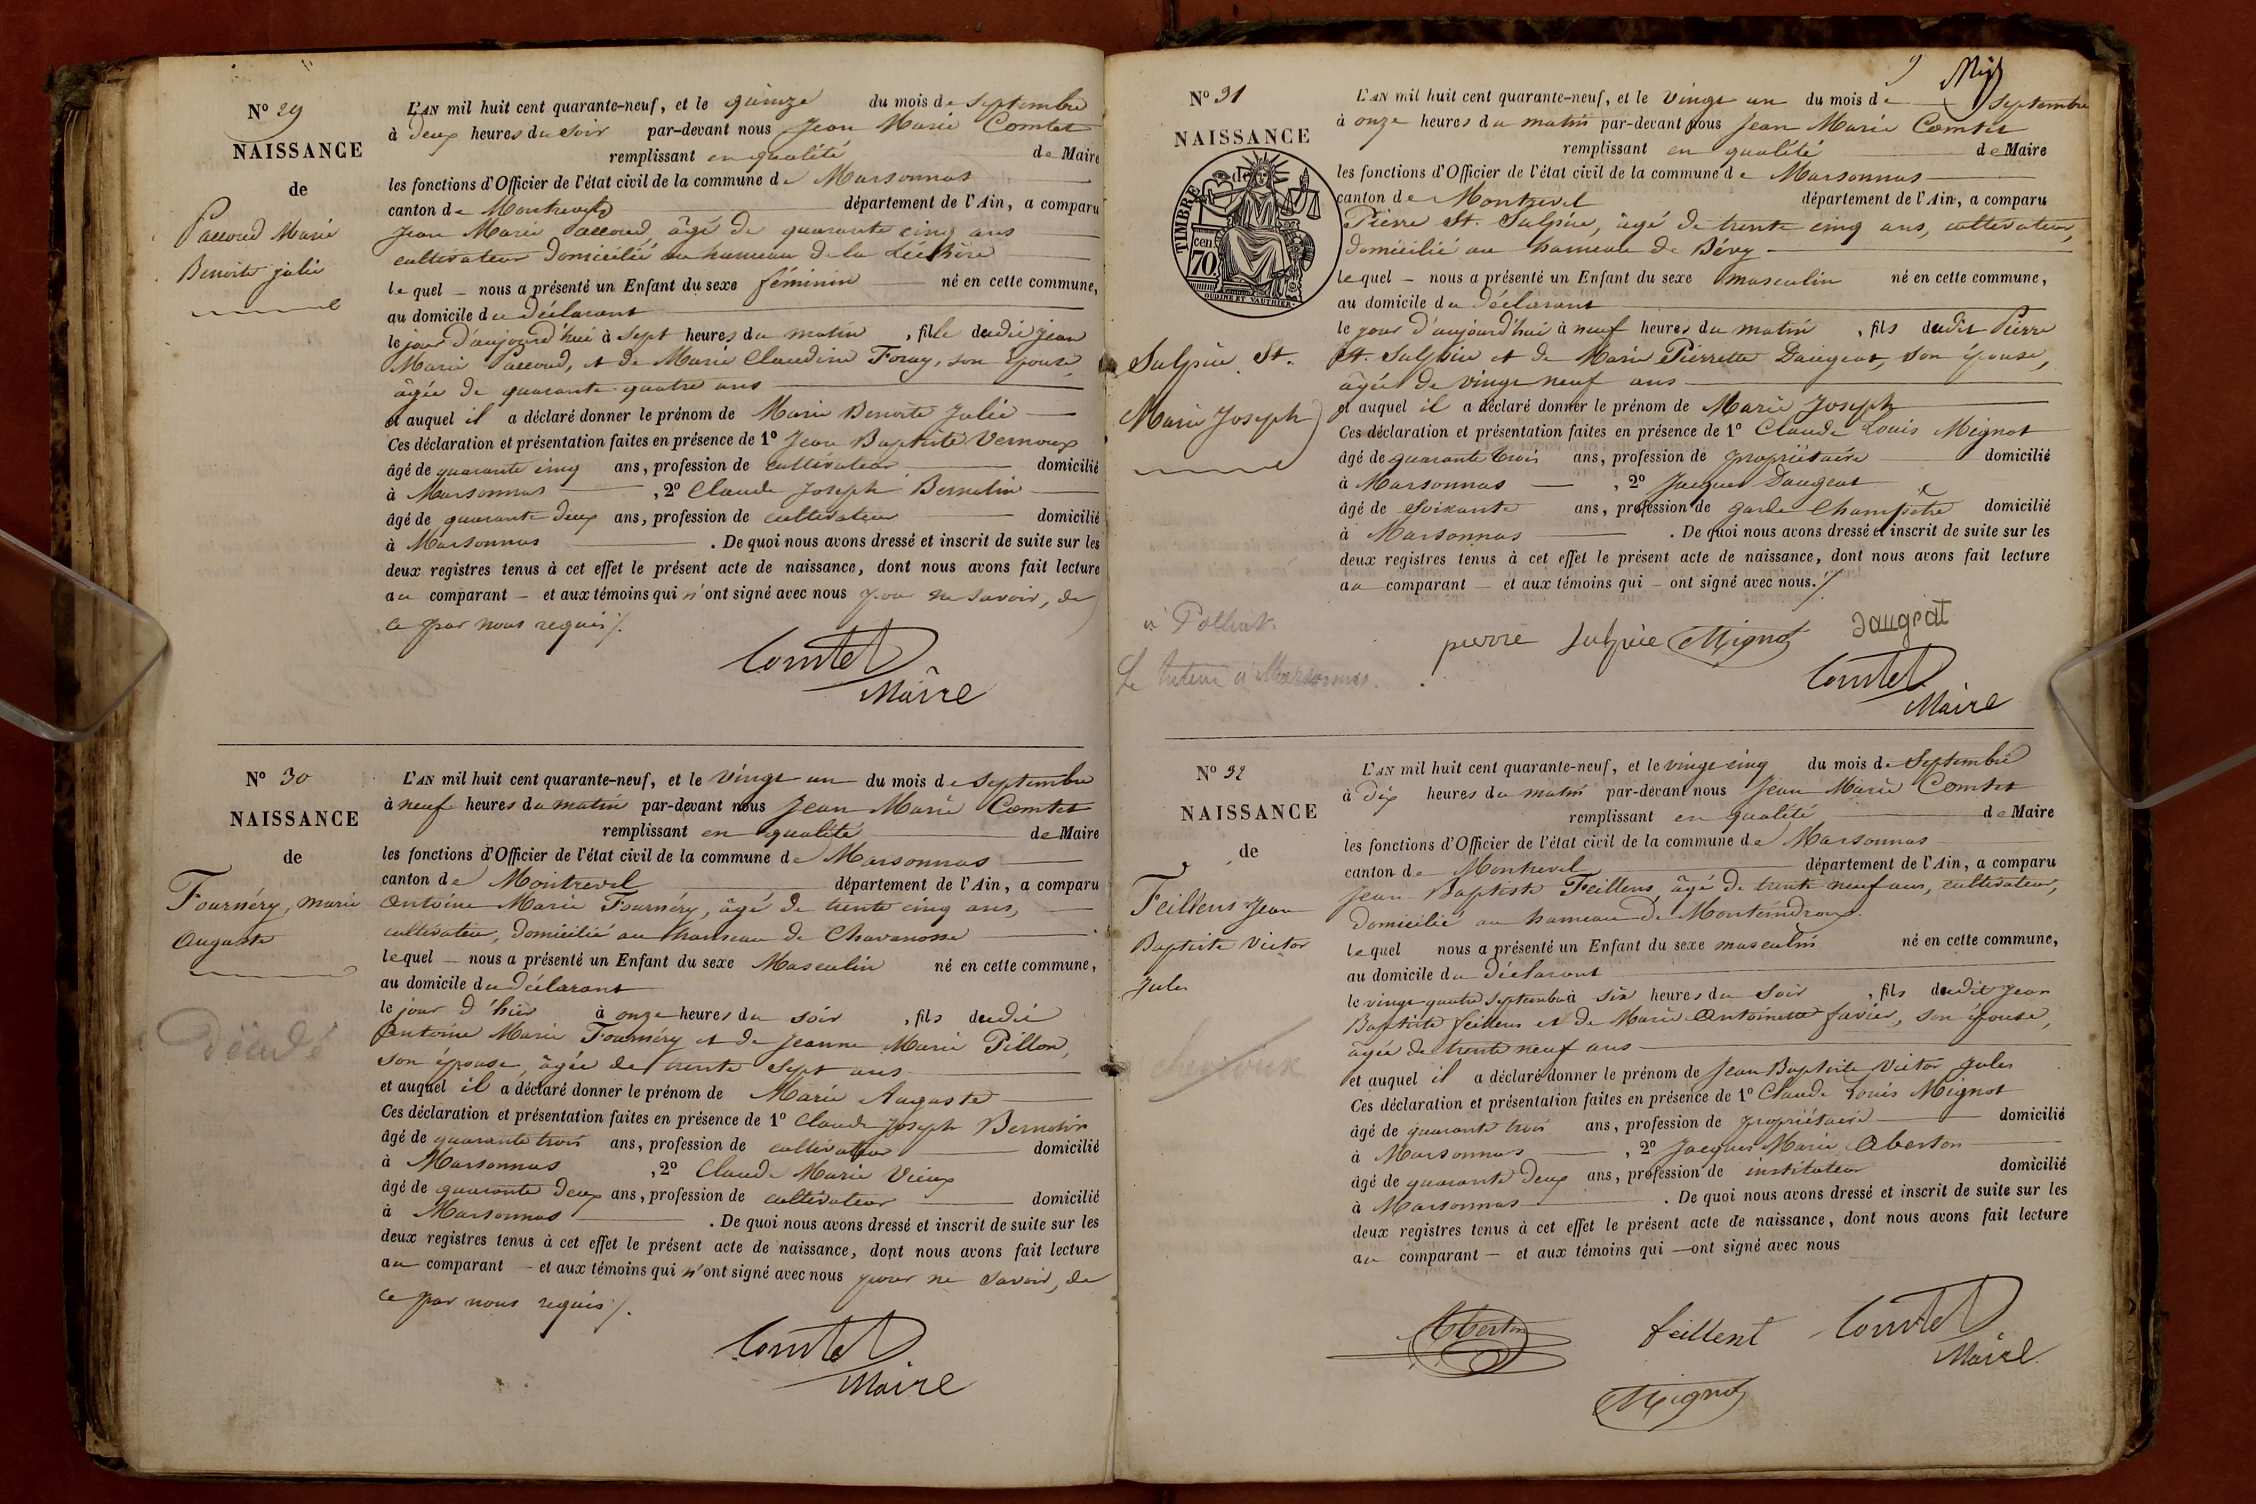 N° 29
NAISSANCE
de
Paccoud Marie
Benoite julie
L'AN mil huit cent quarante-neuf, et le quinze du mois de Septembre
à deux heures du soir par-devant nous Jean Marie Comtet
remplissant en qualité de Maire
les fonctions d'Officier de l'état civil de la commune de Marsonnas
canton de Montrevel département de l'Ain, a comparu
Jean Marie Paccoud âgé de quarante cinq ans
cultivateur domicilié au hameau de la Léchère
lequel nous a présenté un Enfant du sexe féminin né en cette commune,
au domicile du déclarant
le jour d'aujourd'hui à sept heures du matin, fille dudit jean
Marie Paccoud, et de Marie Claudine Foray, son épouse,
âgée de quarante quatre ans
et auquel il a déclaré donner le prénom de Marie Benoite Julie
Ces déclaration et présentation faites en présence de 1° Jean Baptiste Vernoux
âgé de quarante cinq ans, profession de cultivateur domicilié
à Marsonnas, 2° Claude Joseph Bernolin
âgé de quarante deux ans, profession de cultivateur domicilié
à Marsonnas. De quoi nous avons dressé et inscrit de suite sur les
deux registres tenus à cet effet le présent acte de naissance, dont nous avons fait lecture
au comparant et aux témoins qui n'ont signé avec nous pour ne savoir, de
ce par nous requis ./.
Comtet
Maire
N° 30
NAISSANCE
de
Fournéry, marie
Auguste
Décédé
L'AN mil huit cent quarante-neuf, et le vingt un du mois de Septembre
à neuf heures du matin par-devant nous Jean Marie Comtet
remplissant en qualité de Maire
les fonctions d'Officier de l'état civil de la commune de Marsonnas
canton de Montrevel département de l'Ain, a comparu
Antoine Marie Fournéry, âgé de trente cinq ans,
cultivateur, domicilié au hameau de Chavanosse
lequel nous a présenté un Enfant du sexe Masculin né en cette commune,
au domicile du déclarant
le jour d'hier à onze heures du soir, fils dudit
Antoine Marie Fournéry et de Jeanne Marie Pillon,
son épouse, âgée de trente sept ans
et auquel il a déclaré donner le prénom de Marie Auguste
Ces déclaration et présentation faites en présence de 1° Claude Joseph Bernolin
âgé de quarante trois ans, profession de cultivateur domicilié
à Marsonnas, 2° Claude Marie Vieux
âgé de quarante deux ans, profession de cultivateur domicilié
à Marsonnas. De quoi nous avons dressé et inscrit de suite sur les
deux registres tenus à cet effet le présent acte de naissance, dont nous avons fait lecture
au comparant et aux témoins qui n'ont signé avec nous pour ne savoir, de
ce par nous requis ./.
Comtet
Maire
N° 31
NAISSANCE
de
TIMBRE
cen.
70
OUDINE ET VAUTHIER
Sulpice St.
Marie Joseph
à Polliat
Le tuteur à Marsonnas
L'AN mil huit cent quarante-neuf, et le vingt un du mois de Septembre
à onze heures du matin par-devant nous Jean Marie Comtet
remplissant en qualité de Maire
les fonctions d'Officier de l'état civil de la commune de Marsonnas
canton de Montrevel département de l'Ain, a comparu
Pierre St. Sulpice, âgé de trente cinq ans, cultivateur,
domicilié au hameau de Bévy
lequel nous a présenté un Enfant du sexe masculin né en cette commune,
au domicile du déclarant
le jour d'aujourd'hui à neuf heures du matin, fils dudit Pierre
St. Sulpice et de Marie Pierrette Daugeat, son épouse,
âgée de vingt neuf ans
et auquel il a déclaré donner le prénom de Marie Joseph
Ces déclaration et présentation faites en présence de 1° Claude Louis Mignot
âgé de quarante trois ans, profession de propriétaire domicilié
à Marsonnas, 2° Jacques Daugeat
âgé de soixante ans, profession de garde Champêtre domicilié
à Marsonnas. De quoi nous avons dressé et inscrit de suite sur les
deux registres tenus à cet effet le présent acte de naissance, dont nous avons fait lecture
au comparant et aux témoins qui ont signé avec nous ./.
pierre sulpice Mignot Daugeat
Comtet
Maire
N° 32
NAISSANCE
de
Feillens Jean
Baptiste Victor
Jules
L'AN mil huit cent quarante-neuf, et le vingt cinq du mois de Septembre
à dix heures du matin par-devant nous Jean Marie Comtet
remplissant en qualité de Maire
les fonctions d'Officier de l'état civil de la commune de Marsonnas
canton de Montrevel département de l'Ain, a comparu
Jean Baptiste Feillens, âgé de trente neuf ans, cultivateur,
domicilié au hameau de Monteindroux
lequel nous a présenté un Enfant du sexe masculin né en cette commune,
au domicile du déclarant
le vingt quatre Septembre à six heures du soir, fils dudit Jean
Baptiste feillens et de Marie Antoinette favier, son épouse,
âgée de trente neuf ans
et auquel il a déclaré donner le prénom de Jean Baptiste Victor Jules
Ces déclaration et présentation faites en présence de 1° Claude Louis Mignot
âgé de quarante trois ans, profession de propriétaire domicilié
à Marsonnas, 2° Jacques Marie Oberson
âgé de quarante deux ans, profession de instituteur domicilié
à Marsonnas. De quoi nous avons dressé et inscrit de suite sur les
deux registres tenus à cet effet le présent acte de naissance, dont nous avons fait lecture
au comparant et aux témoins qui ont signé avec nous
feillent Comtet
Maire
Mignot